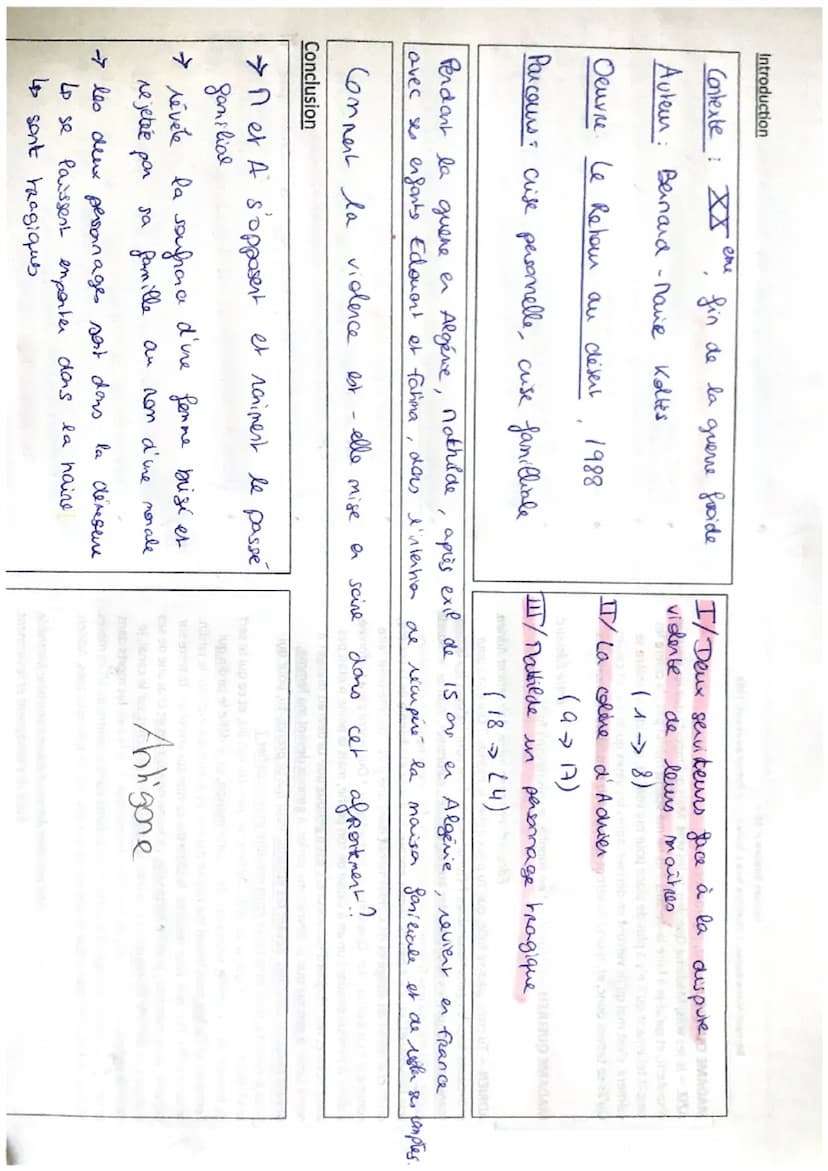 Introduction
Contexte : XXème, fin de la guerre froide
Auteur : Bernard-Marie Koltès
Oeuvre : Le Retour au désert, 1988
Parcours : crise personnelle, crise familliale
I/ Deux serviteurs face à la dispute
violente de leurs maîtres
(1 → 8)
II/ La colère d'Adrien
(9 → 17)
III/ Mathilde un personnage tragique
(18 → 24)
Pendant la guerre en Algérie, Mathilde, après exil de 15 ans en Algérie, revient en France
avec ses enfants Edouart et Fatima, dans l'intention de récupéré la maison familiale et de régler ses comptes.
Comment la violence est-elle mise en scène dans cet affrontement ?
Conclusion
→ M et A s'opposent et raniment le passé
familial
→ révèle la souffrance d'une femme brisé et
rejetée par sa famille au nom d'une morale
→ les deux personnages sont dans la démesure
↳ se laissent emporter dans la haine
↳ sont tragiques
Antigone